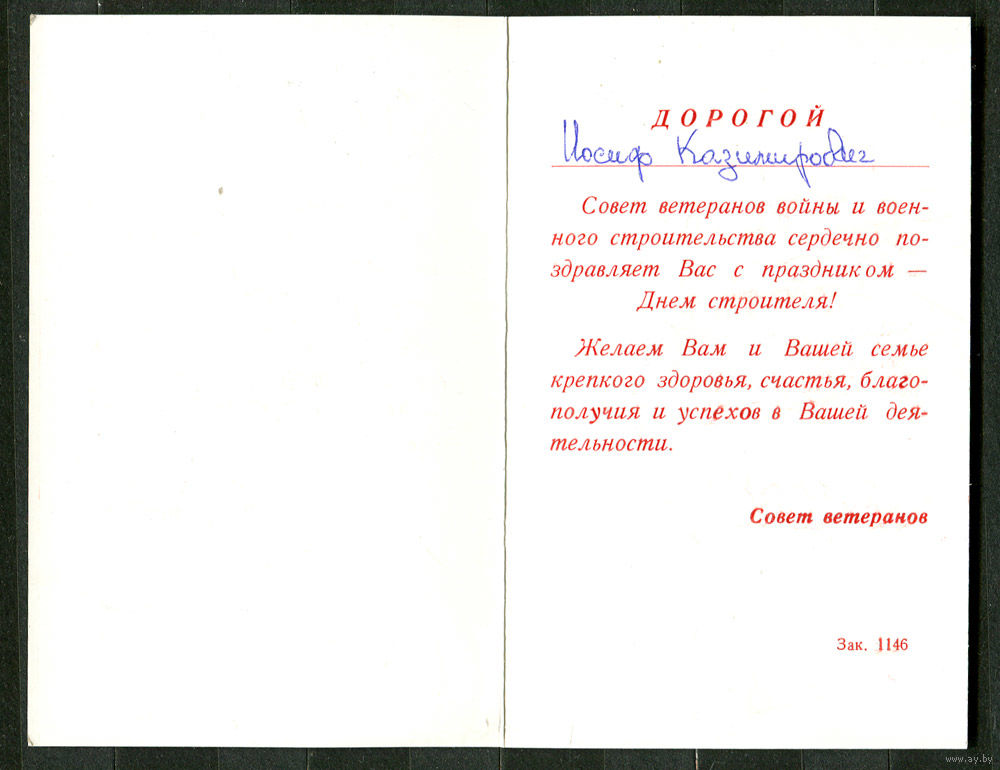 ДОРОГОЙ
Иосиф Казимирович
Совет ветеранов войны и воен-
ного строительства сердечно по-
здравляет Вас с праздником —
Днем строителя!
Желаем Вам и Вашей семье
крепкого здоровья, счастья, благо-
получия и успехов в Вашей дея-
тельности.
Совет ветеранов
Зак. 1146
www.ay.by